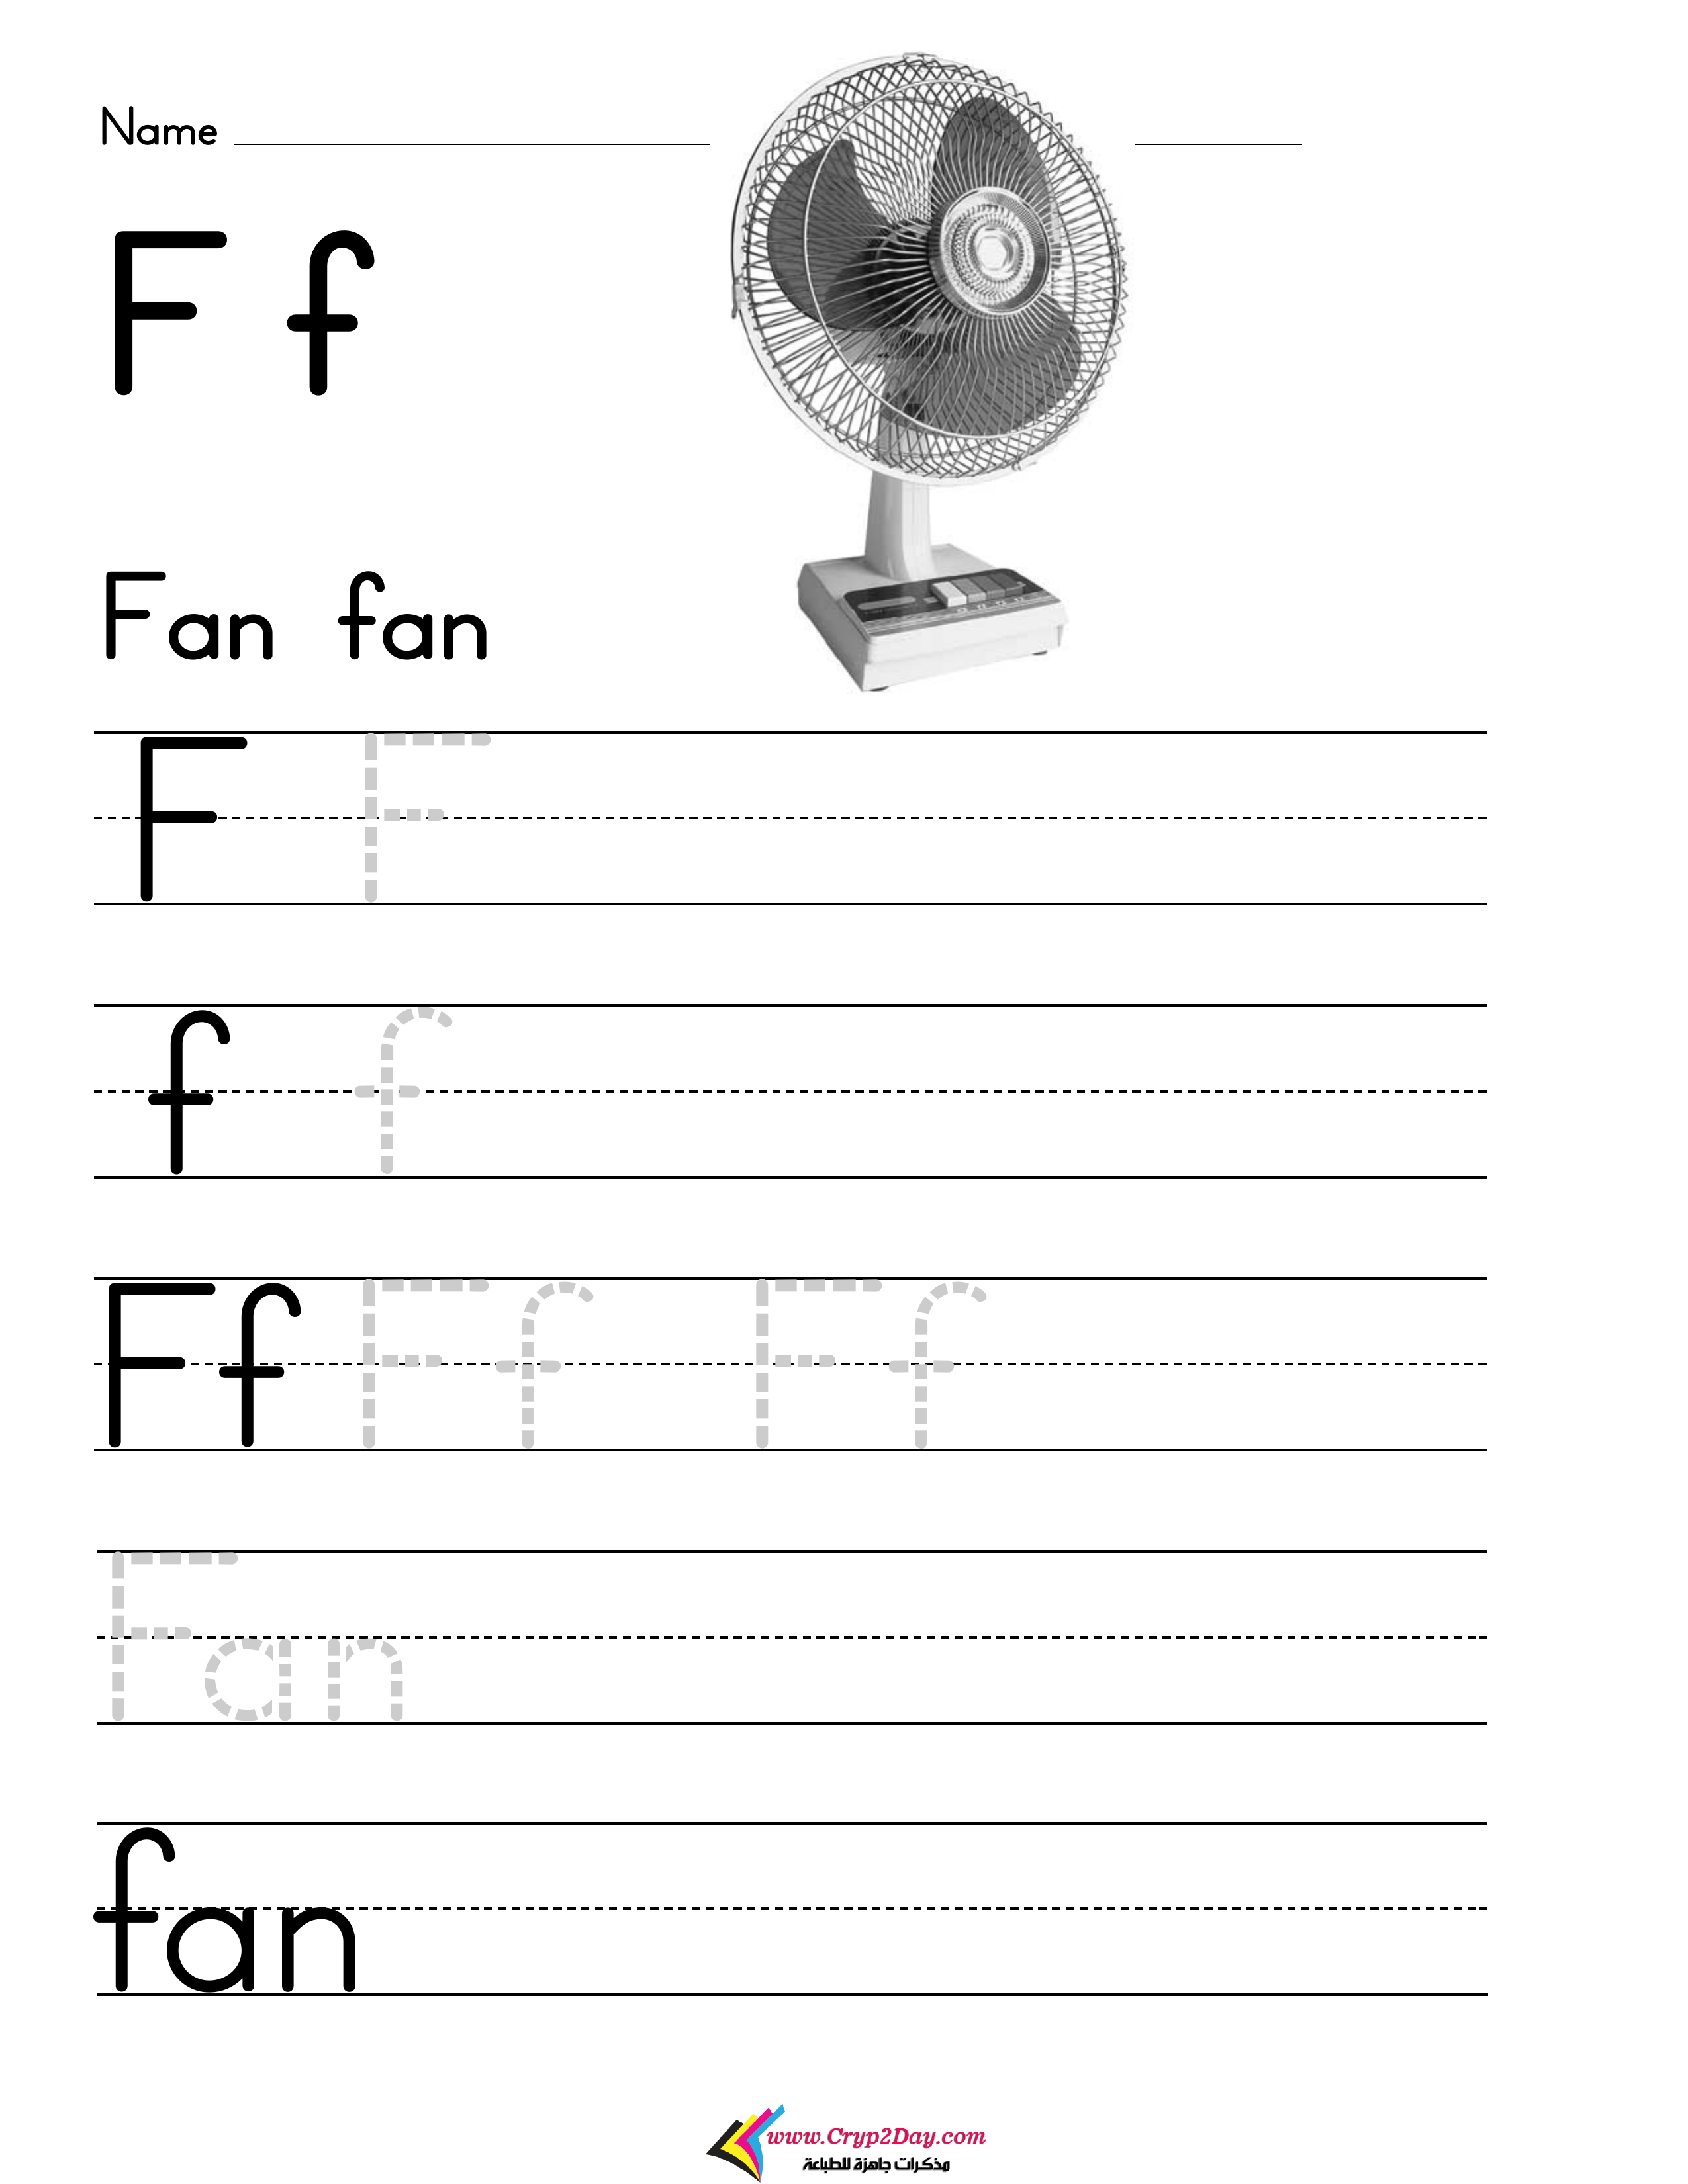 Name
F f
Fan fan
F F
f f
Ff Ff Ff
Fan
fan
www.Cryp2Day.com
مذكرات جاهزة للطباعة